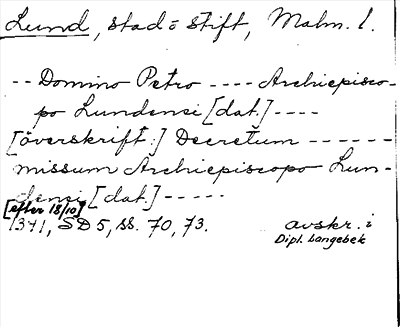 Lund, stad o stift, Malm. l.
-- Domino Petro ---- Archiepisco-
po Lundensi [dat.] ----
[överskrift:] Decretum ------
missum Archiepiscopo Lun-
densi [dat.] -----
[efter 18/10]
1341, SD 5, ss. 70, 73.
avskr. i
Dipl. Langebek